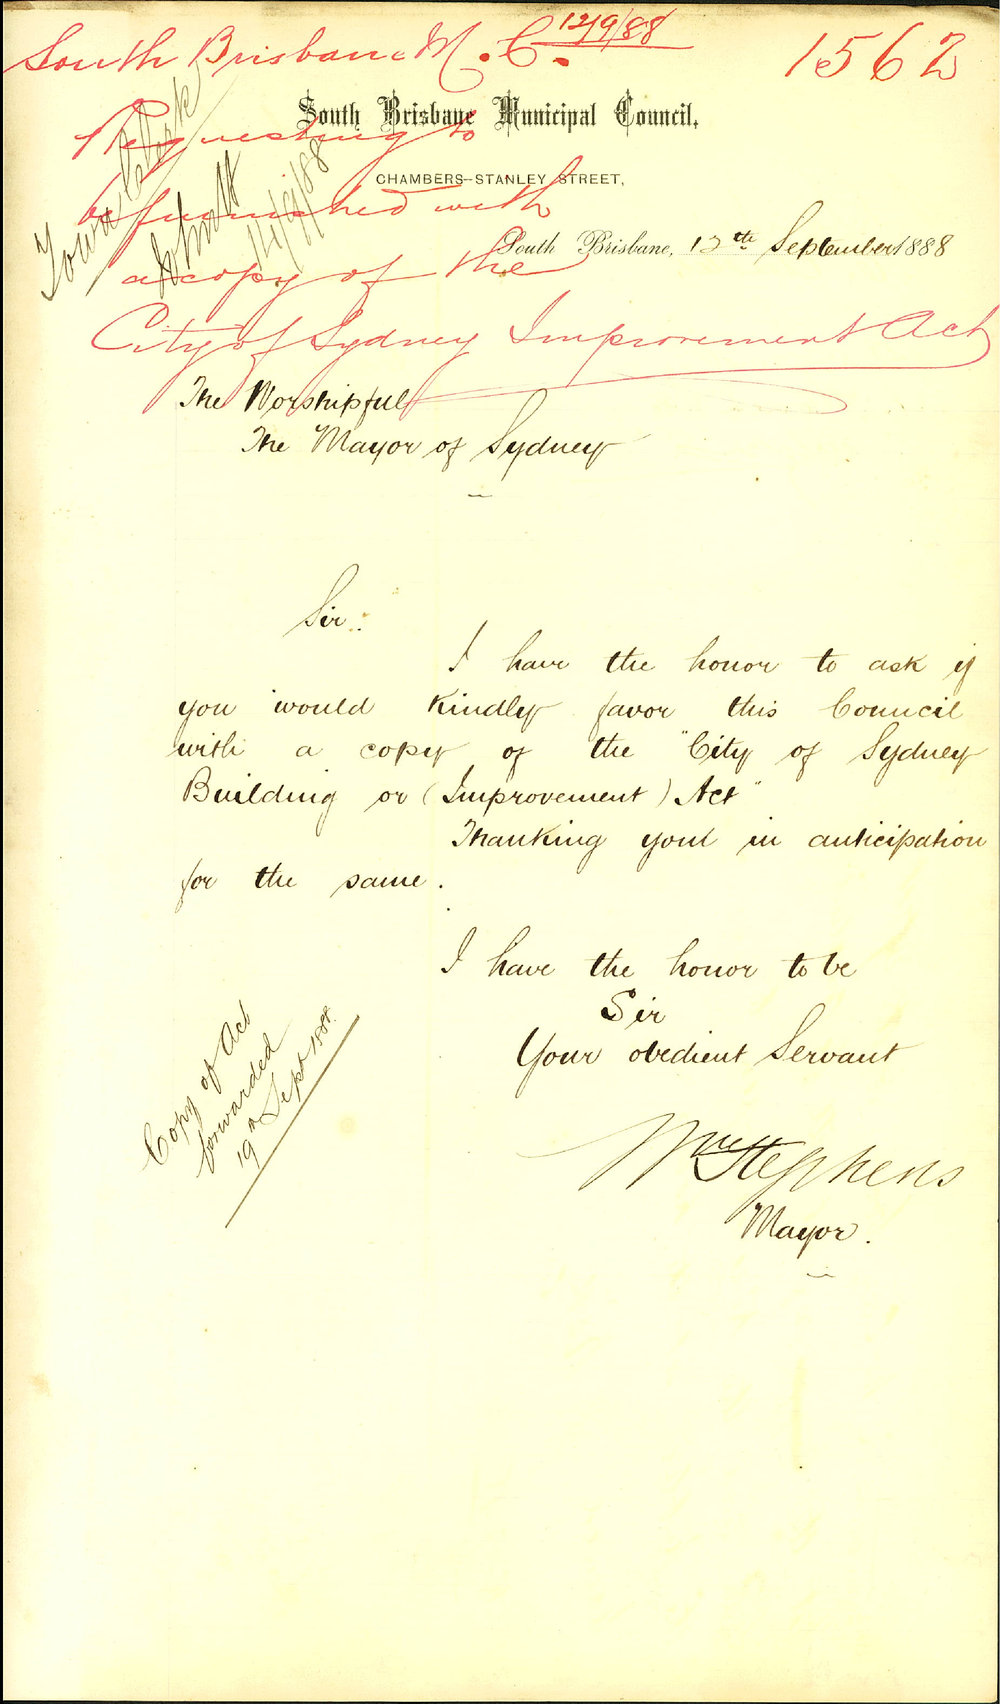 South Brisbane M. C. 12/9/88
1562
South Brisbane Municipal Council.
Requesting to
CHAMBERS-STANLEY STREET,
be furnished with
South Brisbane, 12th September 1888
a copy of the
City of Sydney Improvement Act
Town Clerk
14/9/88
The Worshipful
The Mayor of Sydney
Sir:
I have the honor to ask if
you would kindly favor this Council
with a copy of the "City of Sydney
Building or (Improvement) Act"
Thanking you in anticipation
for the same.
I have the honor to be
Sir
Your obedient Servant
Wm Stephens
Mayor.
Copy of Act
forwarded
19 Sept 1888.